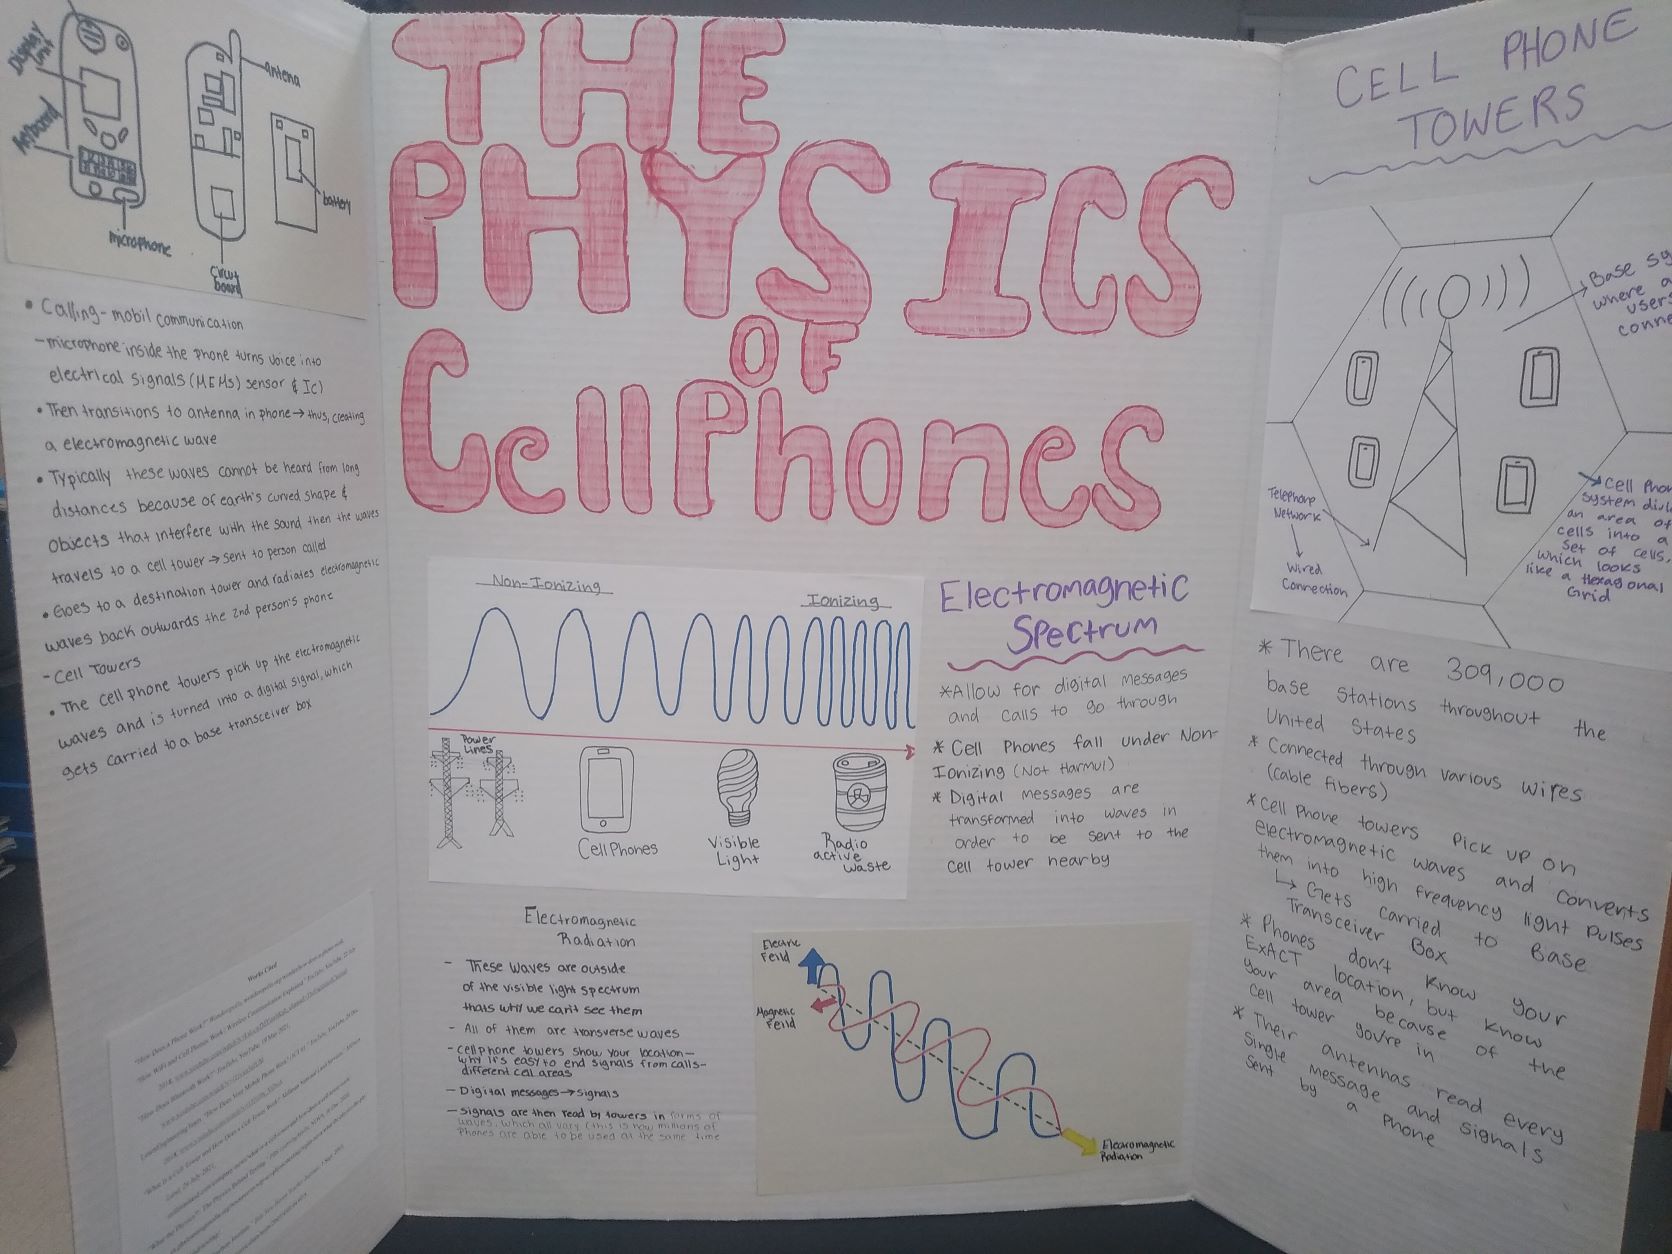 Display Unit
Keyboard
microphone
antena
circut
board
battery
• Calling- mobil communication
- microphone inside the phone turns voice into
electrical signals (MEMs) sensor & Ic)
• Then transitions to antenna in phone → thus, creating
a electromagnetic wave
• Typically these waves cannot be heard from long
distances because of earth's curved shape &
objects that interfere with the sound then the waves
travels to a cell tower → sent to person called
• Goes to a destination tower and radiates electromagnetic
waves back outwards the 2nd person's phone
- Cell Towers
• The cell phone towers pick up the electromagnetic
waves and is turned into a digital signal, which
gets carried to a base transceiver box
Works Cited
THE
PHYSICS
OF
Cell Phones
Non-Ionizing
Ionizing
Power
Lines
Cell Phones
Visible
Light
Radio
active
Waste
Electromagnetic
Spectrum
*Allow for digital messages
and calls to go through
* Cell Phones fall under Non-
Ionizing (Not Harmul)
* Digital messages are
transformed into waves in
order to be sent to the
cell tower nearby
Electromagnetic
Radiation
- These waves are outside
of the visible light spectrum
thats why we can't see them
- All of them are transverse waves
- cellphone towers show your location-
why it's easy to end signals from calls-
different cell areas
- Digital messages → signals
- signals are then read by towers in forms of
waves, which all vary (this is how millions of
Phones are able to be used at the same time
Electric
Feild
Magnetic
Feild
Elecromagnetic
Radiation
CELL PHONE
TOWERS
Base sy
where a
users
conne
Telephone
Network
Wired
Connection
Cell Phon
system divi
an area of
cells into a
set of cells,
which looks
like a Hexagonal
Grid
* There are 309,000
base stations throughout the
United States
* Connected through various wires
(cable fibers)
* Cell Phone towers pick up on
electromagnetic waves and converts
them into high frequency light pulses
↳ Gets carried to Base
Transceiver Box
* Phones don't know your
ExACT location, but know
your area because of the
cell tower you're in
* Their antennas read every
single message and signals
sent by a phone